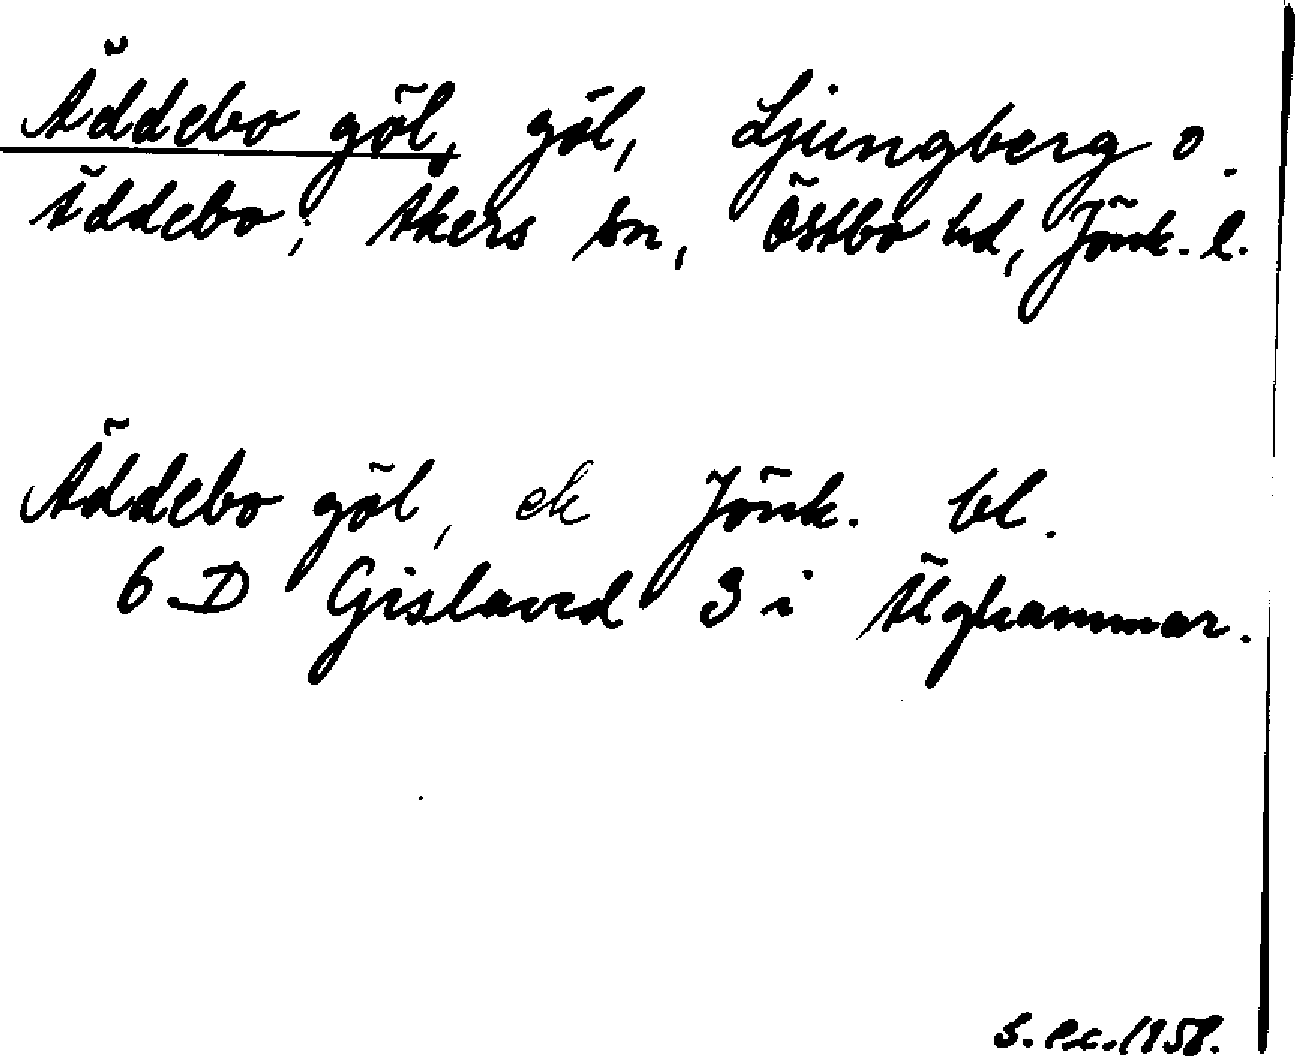 Äddebo göl, göl, Ljungberg o.
Äddebo; Åkers sn, Östbo hd, Jönk. l.
Äddebo göl, ek Jönk. bl.
6 D Gislaved 3 i Älghammar.
S. Ec. 1958.